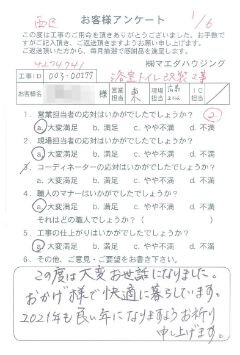 西区
お客様アンケート
1/6
この度は工事のご用命を頂きありがとうございました。お手数で
すがご記入頂き、ご返送頂きますようお願い申し上げます。
ご返送頂いた方から、毎月抽選で感謝品を進呈します。
4274741
㈱マエダハウジング
工事ID 003-00277
浴室トイレ改装工事
様
営業担当
現場担当
IC担当
②
1. 営業担当者の応対はいかがでしたでしょうか？
a. 大変満足 b. 満足 c. やや不満 d. 不満
2. 現場担当者の応対はいかがでしたでしょうか？
a. 大変満足 b. 満足 c. やや不満 d. 不満
3. コーディネーターの応対はいかがでしたでしょうか？
a. 大変満足 b. 満足 c. やや不満 d. 不満
4. 職人のマナーはいかがでしたでしょうか？
a. 大変満足 b. 満足 c. やや不満 d. 不満
それはどの職人でしょうか？
5. 工事の仕上がりはいかがでしたでしょうか？
a. 大変満足 b. 満足 c. やや不満 d. 不満
6. その他、ご意見・ご要望をお書き下さい。
この度は大変お世話になりました。
おかげ様で快適に暮らしています。
2021年も良い年になりますようお祈り
申し上げます。